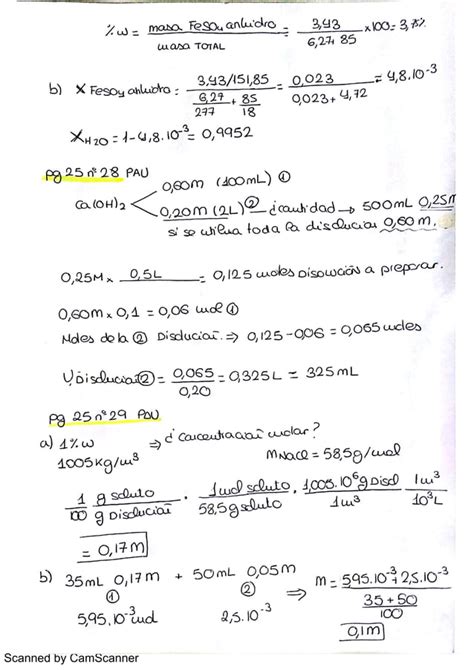 % w = masa FeSO4 anhidro / masa TOTAL = 3,43 / 6,27+85 x100 = 3,75%
b) X FeSO4 anhidro = 3,43/151,85 / 6,27/277 + 85/18 = 0,023 / 0,023 + 4,72 = 4,8.10⁻³
X H2O = 1-4,8.10⁻³ = 0,9952
pg 25 nº 28 PAU
0,60M (100mL) ①
Ca(OH)2
0,20M (2L) ② ¿cantidad → 500mL 0,25M
si se utiliza toda la disolución 0,60M.
0,25M x 0,5L = 0,125 moles Disolución a preparar.
0,60M x 0,1 = 0,06 mol ①
Moles de la ② Disolución ⇒ 0,125-0,06 = 0,065 moles
V Disolución ② = 0,065 / 0,20 = 0,325L = 325mL
pg 25 nº 29 PAU
a) 1% w ⇒ ¿concentración molar?
1005Kg/m³ MNaCl = 58,5g/mol
1/100 g soluto / g Disolución . 1mol soluto / 58,5g soluto . 1,005.10⁶g Disol / 1m³ 1m³ / 10³L
= 0,17M
b) 35mL 0,17M + 50mL 0,05M ⇒ M = 595.10⁻³ + 2,5.10⁻³ / 35+50 / 100
① ②
5,95.10⁻³ mol 2,5.10⁻³
0,1M
Scanned by CamScanner